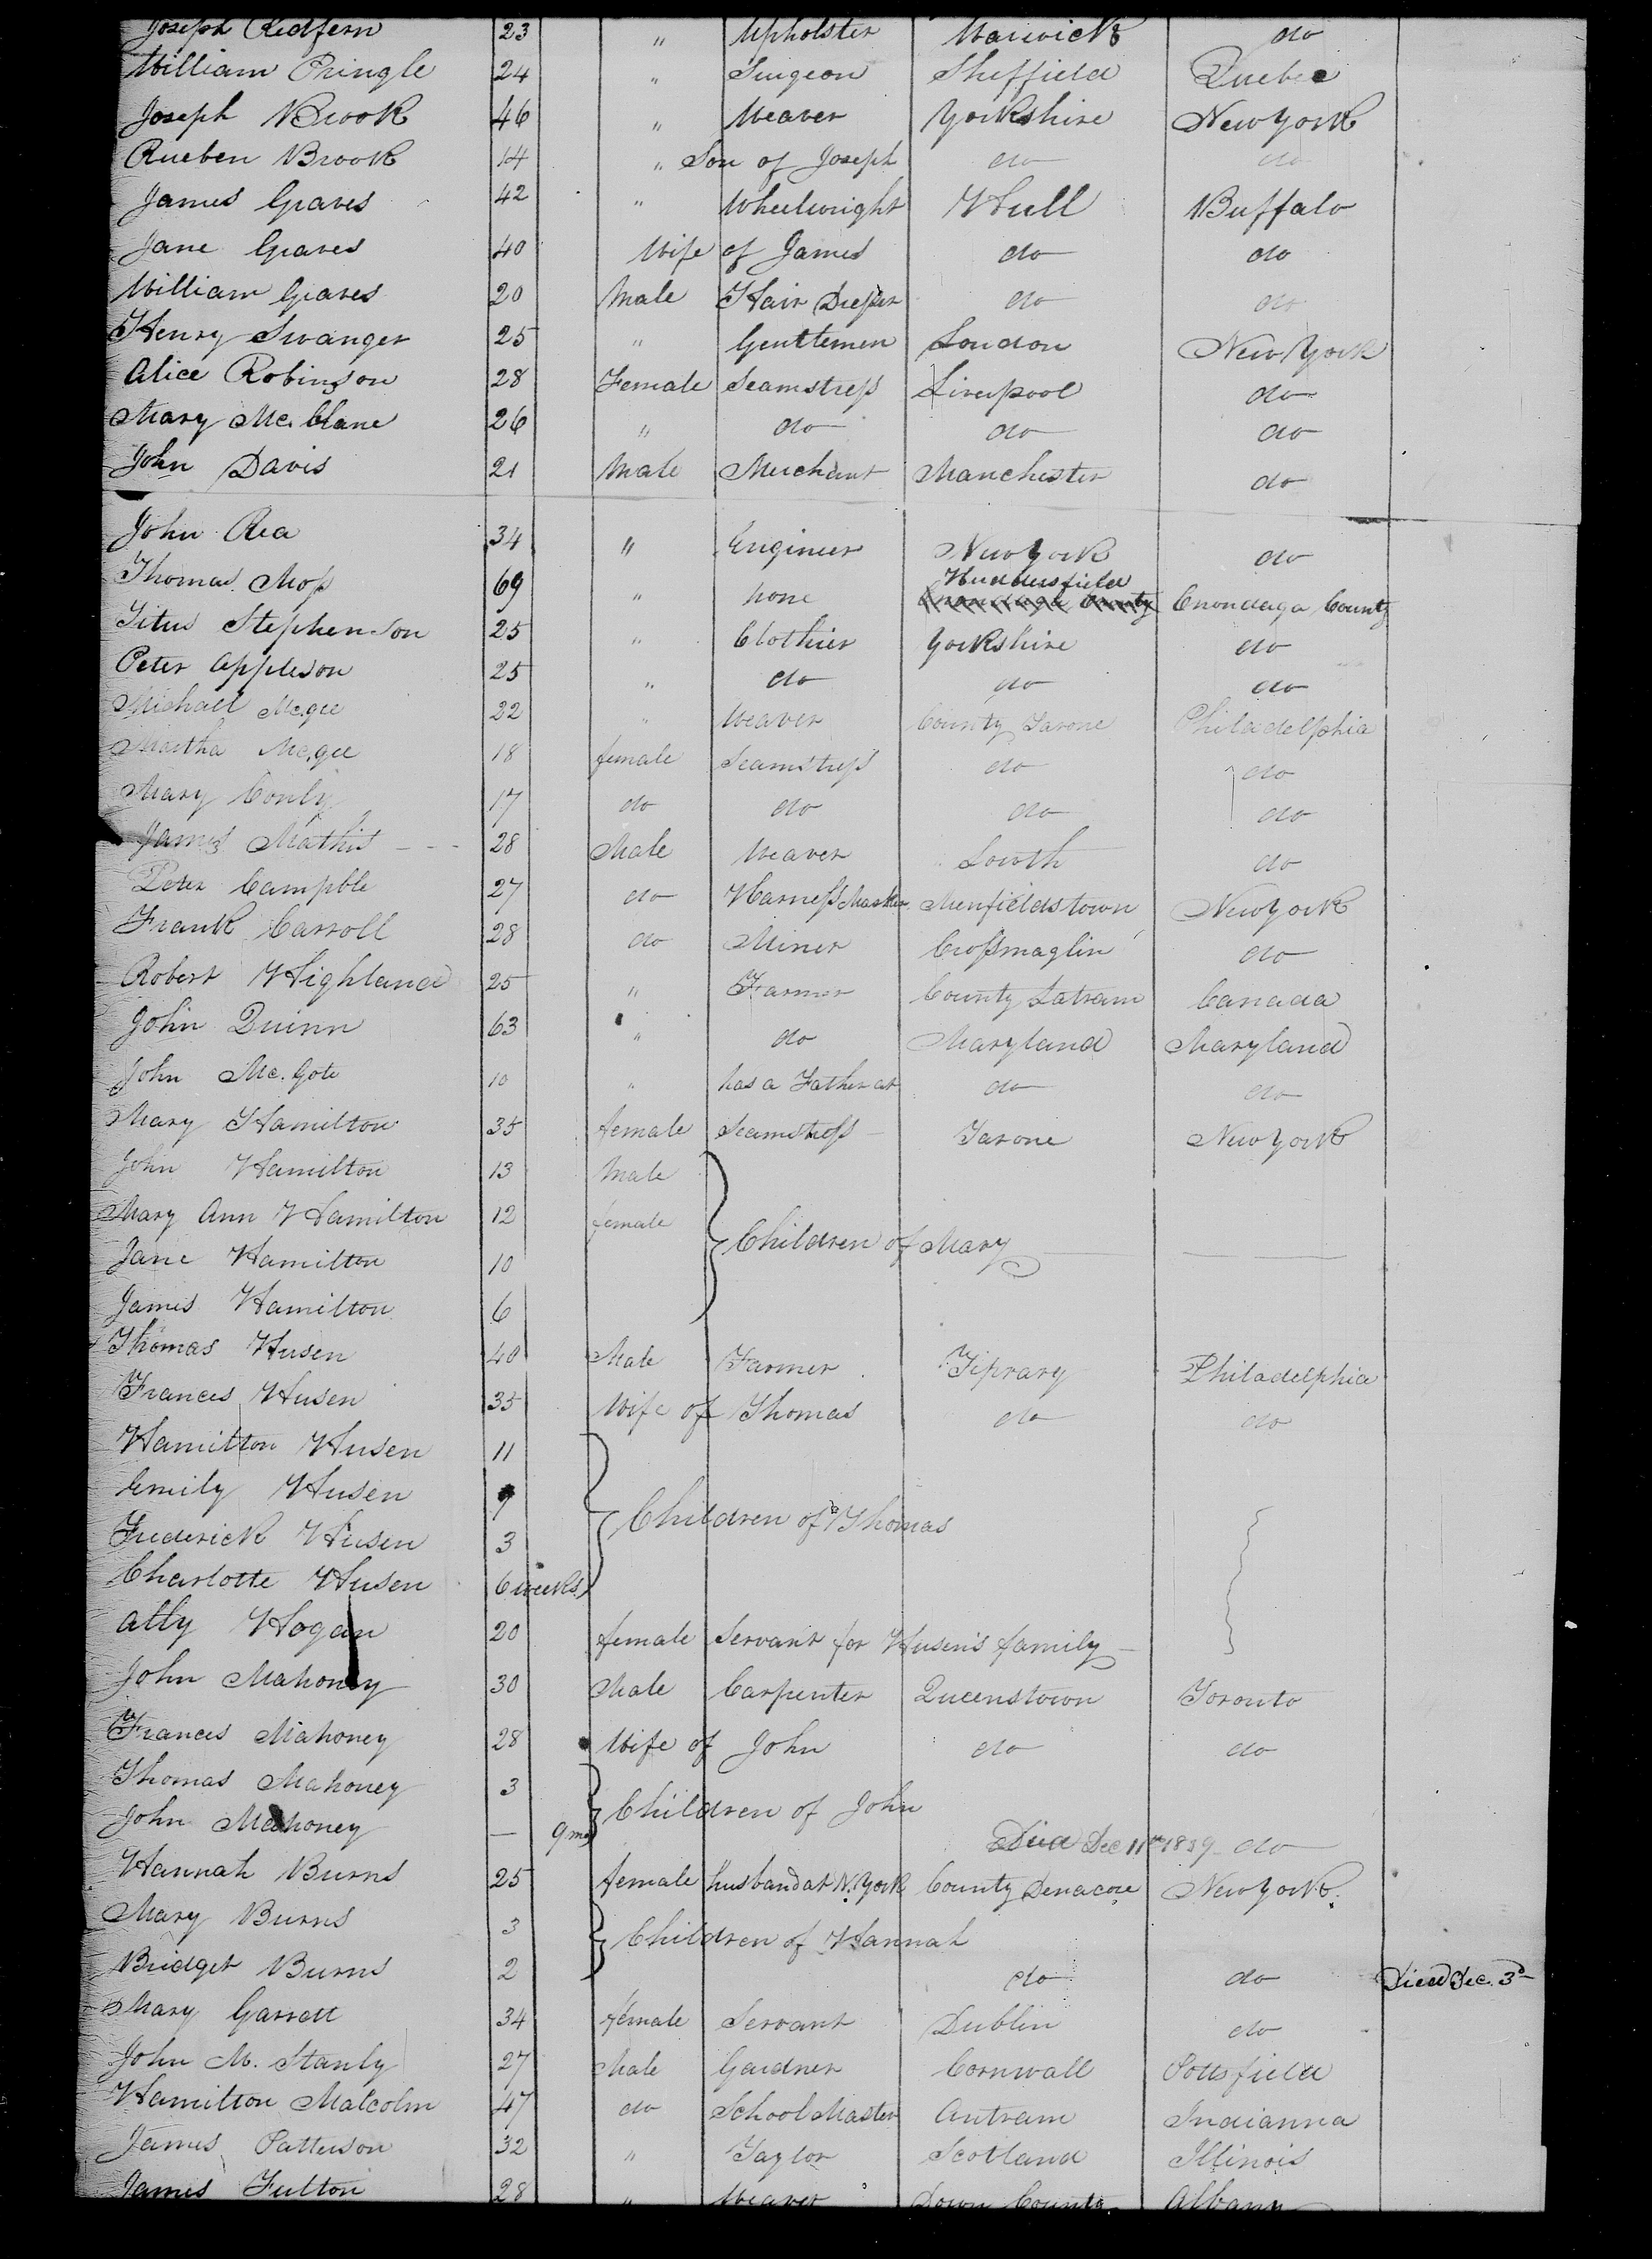 Joseph Redfern 23 " Upholster Warwick do
William Pringle 24 " Surgeon Sheffield Quebec
Joseph Brook 46 " Weaver Yorkshire New York
Rueben Brook 14 " Son of Joseph do do
James Graves 42 " Wheelwright Hull Buffalo
Jane Graves 40 Wife of James do do
William Graves 20 Male Hair Dresser do do
Henry Swanger 25 " Gentlemen London New York
Alice Robinson 28 Female Seamstress Liverpool do
Mary Mc. Clane 26 " do do do
John Davis 21 Male Merchant Manchester do
John Rea 34 " Engineer New York do
Huddersfield
Thomas Moss 69 " none Onondaga County Onondaga County
Titus Stephenson 25 " Clothier Yorkshire do
Peter Appleson 25 " do do do
Michael Mc.gee 22 " Weaver County Tarone Philadelphia
Martha Mc.gee 18 female Seamstress do do
Mary Conly 17 do do do do
James Mathis 28 Male Weaver Louth do
Peter Campble 27 do Harness Maker Menfieldstown New York
Frank Carroll 28 do Miner Crossmaglin do
Robert Highland 25 " Farmer County Latram Canada
John Quinn 63 " do Maryland Maryland
John Mc. Gote 10 " has a Father at do do
Mary Hamilton 35 female Seamstress Tarone New York
John Hamilton 13 Male
Mary Ann Hamilton 12 female
Children of Mary
Jane Hamilton 10
James Hamilton 6
Thomas Husen 40 Male Farmer Tiprary Philadelphia
Frances Husen 35 Wife of Thomas do do
Hamilton Husen 11
Emily Husen 9
Children of Thomas
Frederick Husen 3
Charlotte Husen 6 weeks
Ally Hogan 20 female Servant for Husen's family
John Mahoney 30 Male Carpenter Queenstown Toronto
Frances Mahoney 28 Wife of John do do
Thomas Mahoney 3
Children of John
John Mahoney — 9 mo Died Dec 11th 1839 do
Hannah Burns 25 female husband at N. York County New York.
Mary Burns 3
Children of Hannah
Bridget Burns 2 do do Died Dec. 3d
Mary Garrett 34 female Servant Dublin do
John M. Stanly 27 Male Gardner Cornwall Pottsfield
Hamilton Malcolm 47 do School Master Antram Indianna
James Patterson 32 " Taylor Scotland Illinois
James Fulton 28 " Weaver Down County Albany